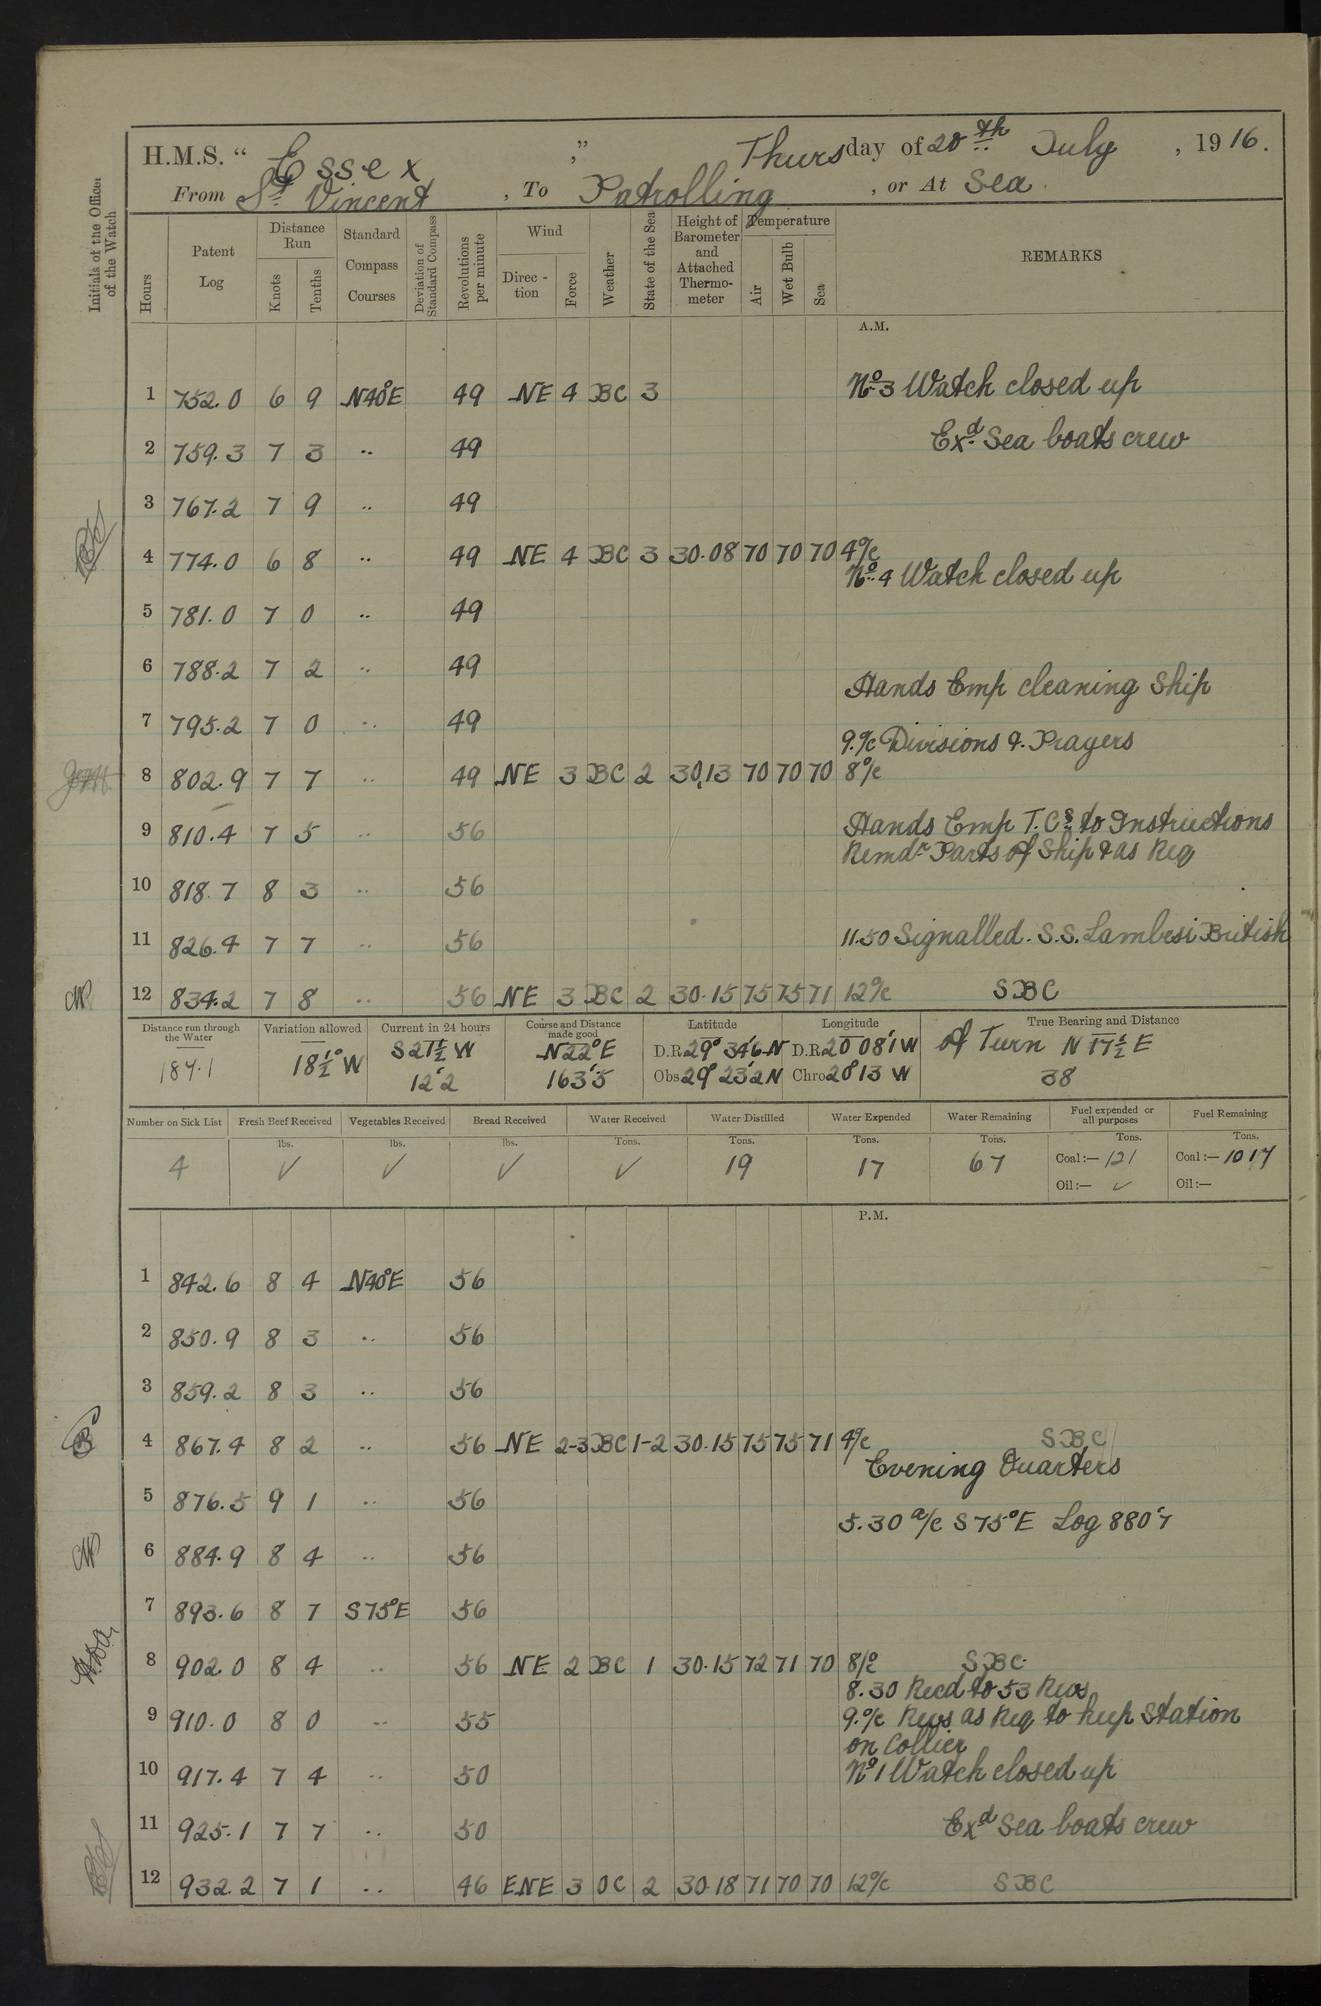 H.M.S. “ Essex ,” Thursday of 20th July , 1916.
From St Vincent , To Patrolling , or At Sea
Initials of the Officer of the Watch
Hours
Patent Log
Distance Run
Knots
Tenths
Standard Compass Courses
Deviation of Standard Compass
Revolutions per minute
Wind
Direc-tion
Force
Weather
State of the Sea
Height of Barometer and Attached Thermo-meter
Temperature
Air
Wet Bulb
Sea
REMARKS
A.M.
1 752.0 6 9 N40°E 49 NE 4 BC 3 No 3 Watch closed up
Exd Sea boats crew
2 759.3 7 3 .. 49
3 767.2 7 9 .. 49
4 774.0 6 8 .. 49 NE 4 BC 3 30.08 70 70 70 4o/c
No 4 Watch closed up
5 781.0 7 0 .. 49
6 788.2 7 2 .. 49
Hands Emp cleaning Ship
7 795.2 7 0 .. 49
9.o/c Divisions & Prayers
8 802.9 7 7 .. 49 NE 3 BC 2 30.13 70 70 70 8o/c
9 810.4 7 5 .. 56 Hands Emp T.Cs to Instructions
Remdr Parts of Ship & as Req
10 818.7 8 3 .. 56
11 826.4 7 7 .. 56 11.50 Signalled. S.S. Lambesi British
12 834.2 7 8 .. 56 NE 3 BC 2 30.15 75 75 71 12o/c SBC
Distance run through the Water
187.1
Variation allowed
18½° W
Current in 24 hours
S21½ W
12'2
Course and Distance made good
N22°E
163'5
Latitude
D.R. 29° 34'6 N
Obs 29° 23'2 N
Longitude
D.R. 20 08'1 W
Chro 20 13 W
True Bearing and Distance
of Turn N 17½ E
38
Number on Sick List
4
Fresh Beef Received
lbs.
✓
Vegetables Received
lbs.
✓
Bread Received
lbs.
✓
Water Received
Tons.
✓
Water Distilled
Tons.
19
Water Expended
Tons.
17
Water Remaining
Tons.
67
Fuel expended or all purposes
Tons.
Coal:— 121
Oil:— ✓
Fuel Remaining
Tons.
Coal:— 1017
Oil:—
P.M.
1 842.6 8 4 N40°E 56
2 850.9 8 3 .. 56
3 859.2 8 3 .. 56
4 867.4 8 2 .. 56 NE 2-3 BC 1-2 30.15 75 75 71 4o/c SBC
Evening Quarters
5 876.5 9 1 .. 56
5.30 a/c S75°E Log 880'7
6 884.9 8 4 .. 56
7 893.6 8 7 S75°E 56
8 902.0 8 4 .. 56 NE 2 BC 1 30.15 72 71 70 8o/c SBC
8.30 Recd to 53 Revs
9 910.0 8 0 .. 55 9.o/c Revs as Req to keep Station
on Collier
10 917.4 7 4 .. 50 No 1 Watch closed up
11 925.1 7 7 .. 50 Exd Sea boats crew
12 932.2 7 1 .. 46 ENE 3 OC 2 30.18 71 70 70 12o/c SBC